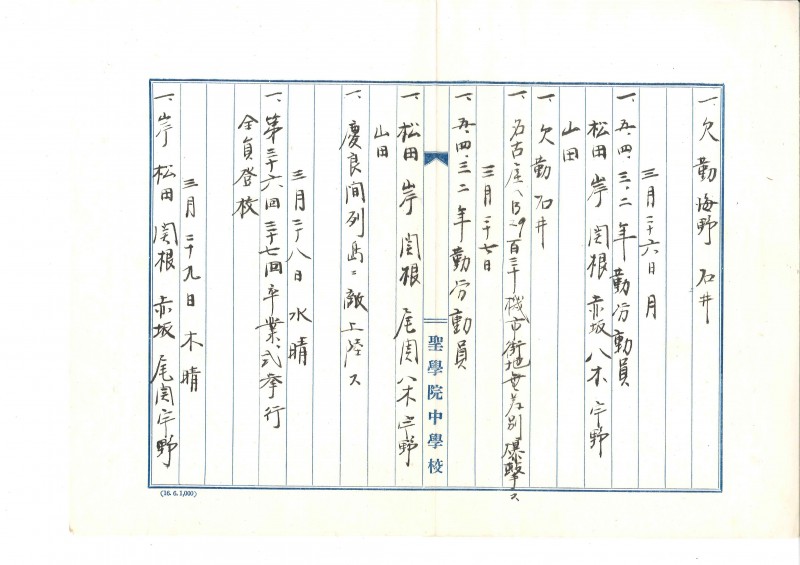 一、欠勤 海野 石井
三月二十六日 月
一、五、四、三、二年 勤労動員
松田 岸 関根 赤坂 八木 宇野
山田
一、欠勤 石井
一、名古屋ヘB29百三十機市街地無差別爆撃ス
三月二十七日
一、五、四、三、二年勤労動員
聖學院中學校
一、松田 岸 関根 尾関 八木 宇野
山田
一、慶良間列島ニ敵上陸ス
三月二十八日 水 晴
一、第三十六回三十七回卒業式挙行
全員登校
三月二十九日 木 晴
一、岸 松田 関根 赤坂 尾関 宇野
(16. 6. 1,000)